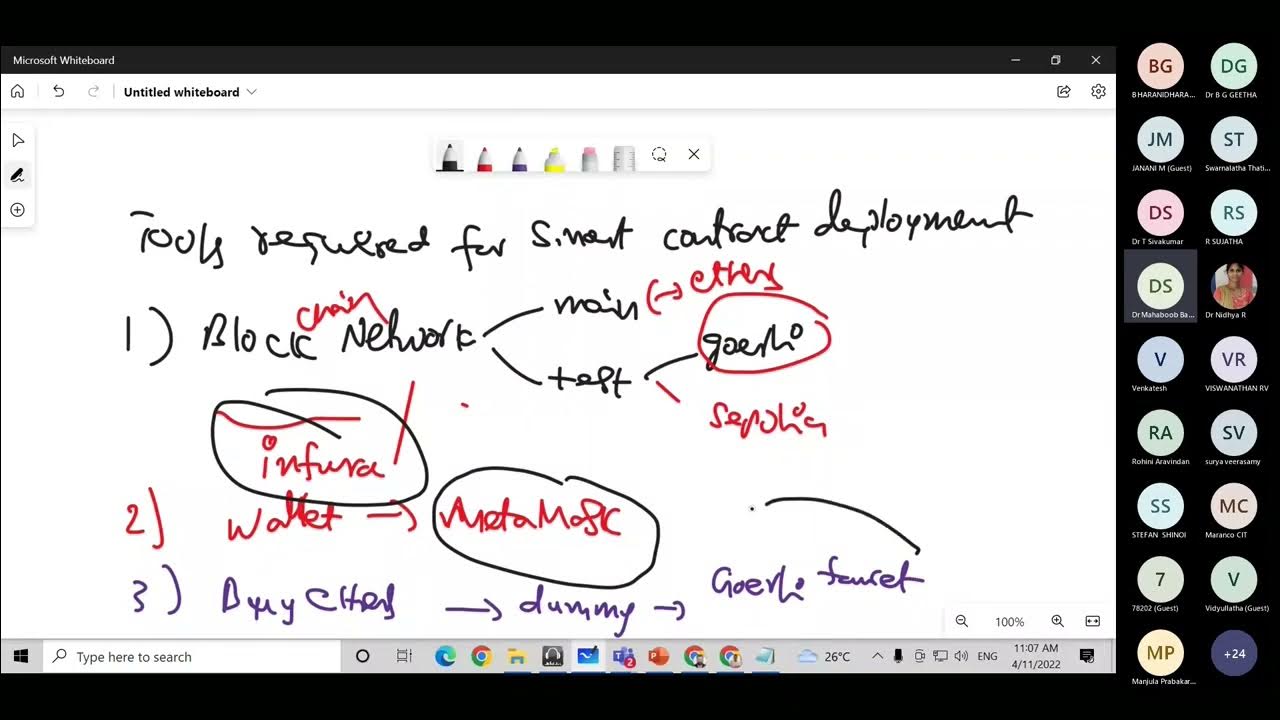 Microsoft Whiteboard
Untitled whiteboard
Tools required for Smart contract deployment
1) Block chain Network
main (→ ethers
test
goerli
sepolia
infura
2) wallet → MetaMask
3) Buy Ethers → dummy → Goerli faucet
100%
Type here to search
2
26°C
ENG
11:07 AM
4/11/2022
BG
BHARANIDHARA...
DG
Dr B G GEETHA
JM
JANANI M (Guest)
ST
Swarnalatha Thati...
DS
Dr T Sivakumar
RS
R SUJATHA
DS
Dr Mahaboob Ba...
Dr Nidhya R
V
Venkatesh
VR
VISWANATHAN RV
RA
Rohini Aravindan
SV
surya veerasamy
SS
STEFAN SHINOI
MC
Maranco CIT
7
78202 (Guest)
V
Vidyullatha (Guest)
MP
Manjula Prabakar...
+24